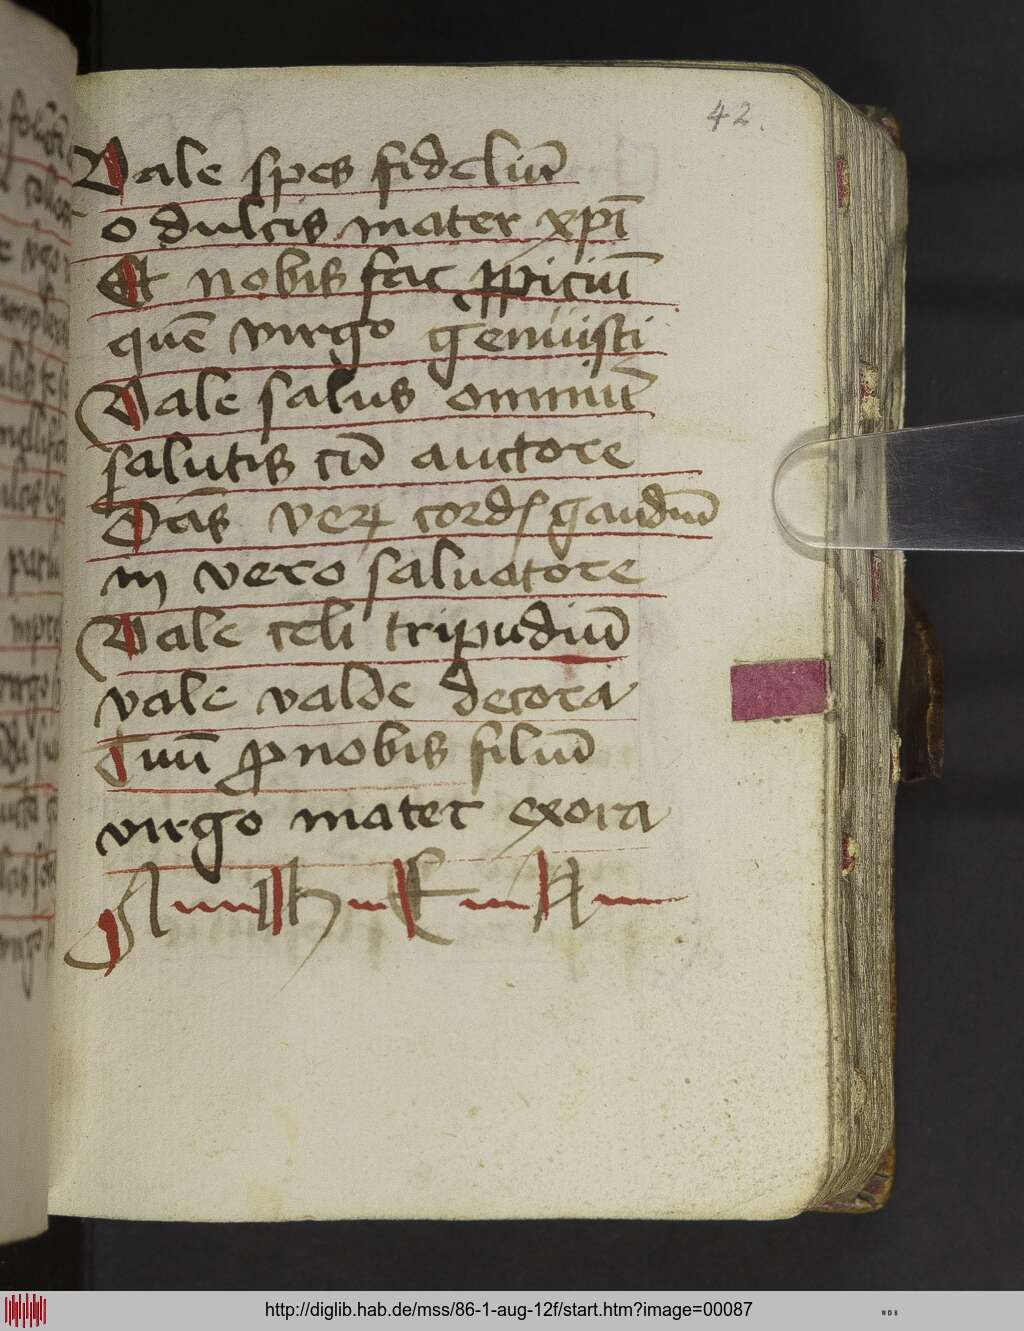 42.
Vale spes fideliū
o dulcis mater xp̄i
Et nobis fac ꝓpiciū
quē virgo genuisti
Vale salus omniū
salutis cū auctore
Dās veꝝ cordꝭ gaudiū
in vero saluatore
Vale celi tripudiū
vale valde decora
Tuū ꝓ nobis filiū
virgo mater exora
A M E N
http://diglib.hab.de/mss/86-1-aug-12f/start.htm?image=00087